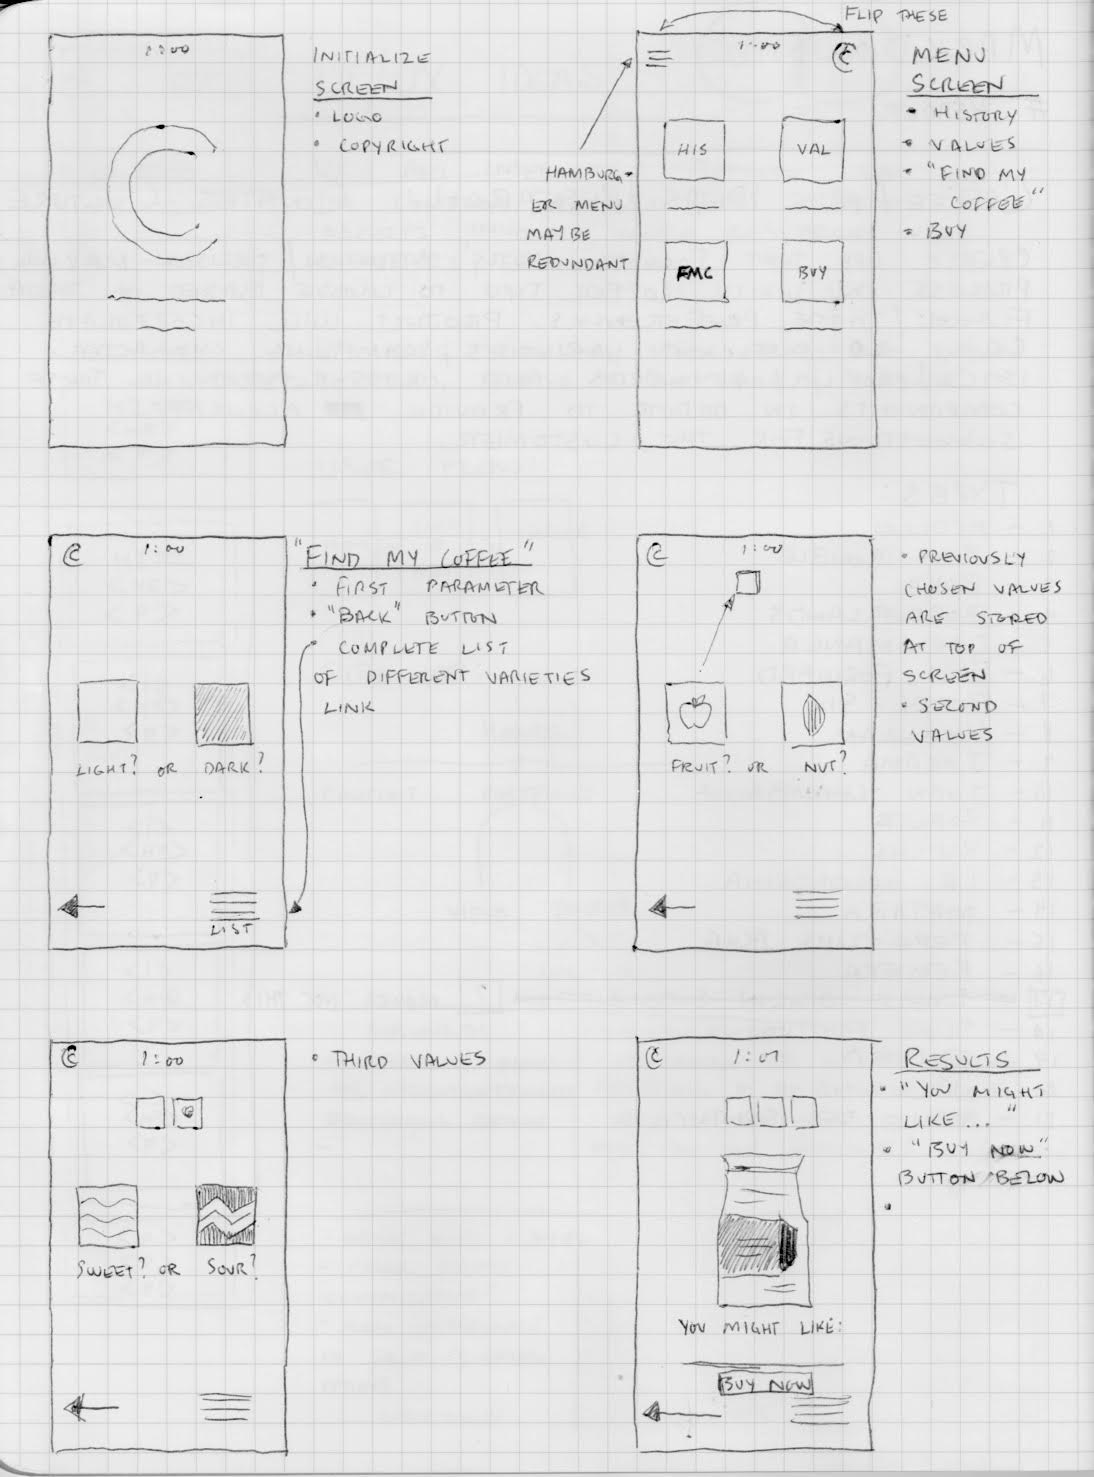 1:00
INITIALIZE
SCREEN
• LOGO
• COPYRIGHT
FLIP THESE
1:00
C
HIS
VAL
FMC
BUY
HAMBURG-
ER MENU
MAY BE
REDUNDANT
MENU
SCREEN
• HISTORY
• VALUES
• "FIND MY
COFFEE"
• BUY
C
1:00
LIGHT? OR DARK?
LIST
"FIND MY COFFEE"
• FIRST PARAMETER
• "BACK" BUTTON
• COMPLETE LIST
OF DIFFERENT VARIETIES
LINK
C
1:00
FRUIT? OR NUT?
• PREVIOUSLY
CHOSEN VALUES
ARE STORED
AT TOP OF
SCREEN
• SECOND
VALUES
C
1:00
SWEET? OR SOUR?
• THIRD VALUES
C
1:01
YOU MIGHT LIKE:
BUY NOW
RESULTS
• "YOU MIGHT
LIKE..."
• "BUY NOW"
BUTTON BELOW
•